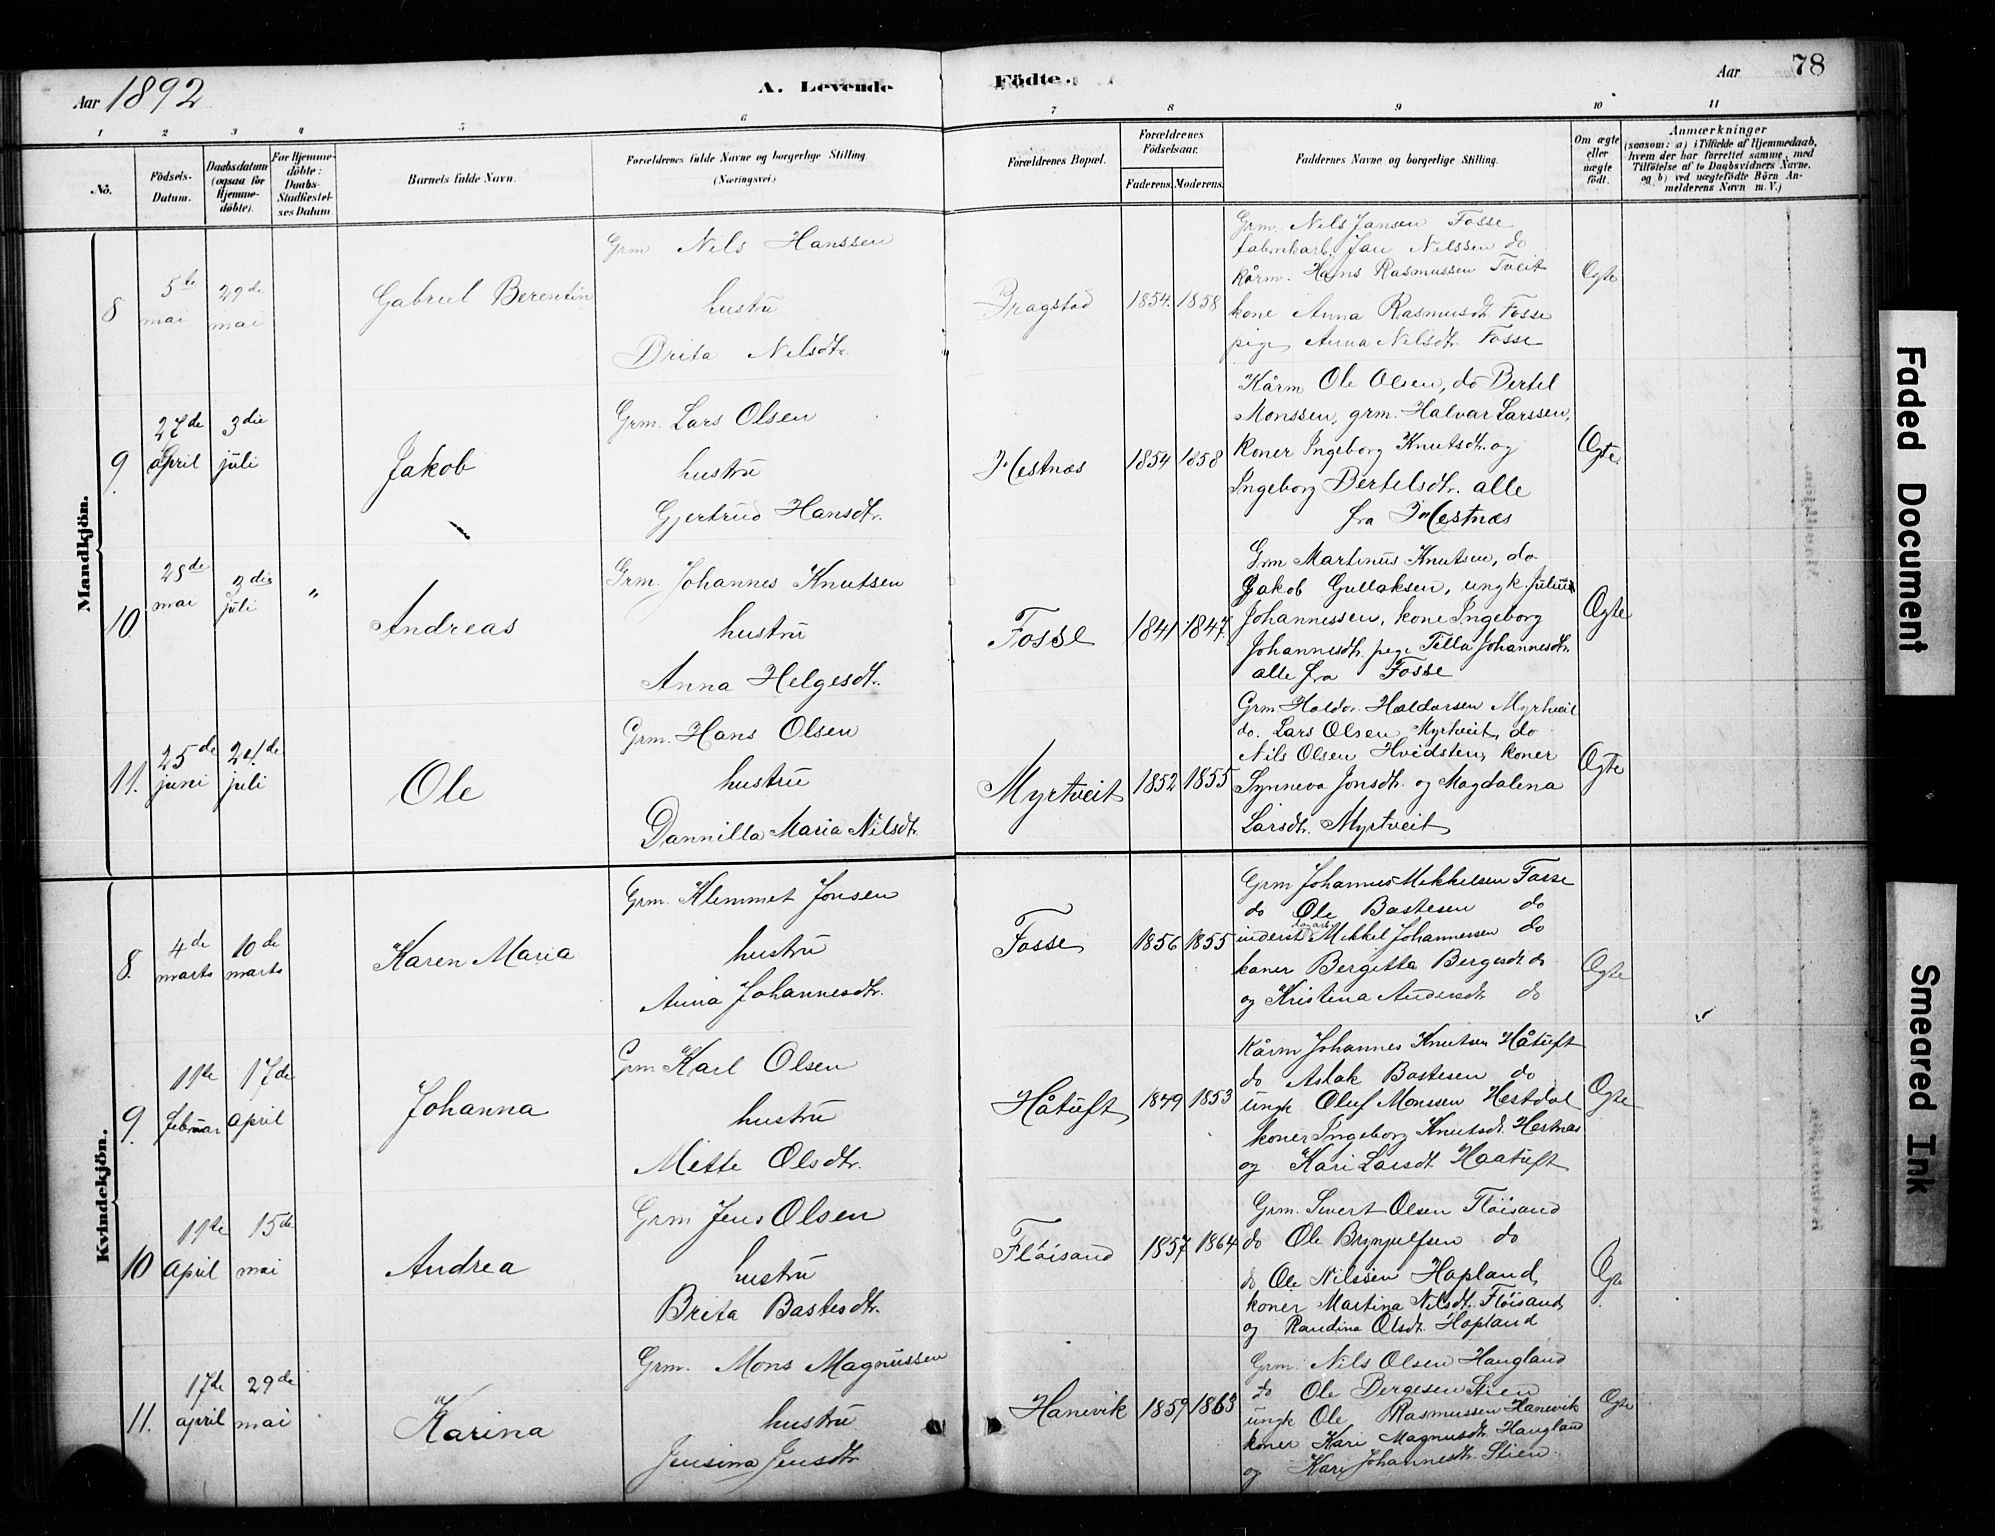 Aar 1892
A. Levende Födte.
Aar 78
1 2 3 4 5 6 7 8 9 10 11
No.
Födsels-Datum.
Daabsdatum (ogsaa for Hjemme-döbte).
For Hjemme-döbte: Daabs-Stadfæstel-ses Datum.
Barnets fulde Navn.
Forældrenes fulde Navne og borgerlige Stilling (Næringsvei.)
Forældrenes Bopæl.
Forældrenes Födselsaar.
Faderens. Moderens.
Faddernes Navne og borgerlige Stilling.
Om ægte eller uægte födt.
Anmærkninger
(saasom: a) i Tilfælde af Hjemmedaab,
hvem der har forrettet samme, med
Tilföielse af to Daabsvidners Navne,
og b) ved uægtefödte Börn An-
melderens Navn m.V.)
Mandkjön.
8
5te mai
29de mai
Gabriel Berentin
Grm Nils Hanssen
hustru
Brita Nilsdtr.
Dragstad
1854. 1858
Grm. Nils Jansen Fosse
fabrikarb. Jan Nilssen do
Kårm. Hans Rasmussen Tveit
kone Anna Rasmusdt. Fosse
pige Anna Nilsdtr. Fosse
Ægte
9.
27de april
3die juli
Jakob
Grm. Lars Olsen
hustru
Gjertrud Hansdtr.
Hestnæs
1854 1858
Kårm Ole Olsen, do Bertel
Monssen, grm. Halvar Larssen,
koner Ingeborg Knutsdtr. og
Ingeborg Bertelsdtr. alle
fra Hestnæs
Ægte
10
28de mai
3die juli
"
Andreas
Grm. Johannes Knutsen
hustru
Anna Helgesdtr.
Fosse
1841 1847
Grm Martinus Knutsen, do
Jakob Gullaksen, ungk. Julius
Johannessen, kone Ingeborg
Johannesdtr. pige Tilla Johannesdtr.
alle fra Fosse
Ægte
11.
25de juni
24de juli
Ole
Grm. Hans Olsen
hustru
Dannilla Maria Nilsdtr.
Myrtveit
1852 1855
Grm. Haldor Haldorsen Myrtveit
do. Lars Olsen Myrtveit, do
Nils Olsen Hvidsten, koner
Synneva Jonsdtr. og Magdalena
Larsdtr. Myrtveit
Ægte
Kvindekjön.
8.
4de marts
10de marts
Karen Maria
Grm. Klemmet Jonsen
hustru
Anna Johannesdtr.
Fosse
1856 1855
Grm Johannes Mikkelsen Fosse
do Ole Bastesen do
inderst Mikkel Johannessen do
koner Bergitta Bergesdt. do
og Kristina Andersdtr do
Ægte
9.
11te februar
17de april
Johanna
Grm Karl Olsen
hustru
Mette Olsdtr.
Håtuft
1849 1853
Kårm Johannes Knutsen Håtuft
do Aslak Bastesen do
ungk Oluf Monssen Hestdal
koner Ingeborg Knutsdt. Hestnæs
og Kari Larsdt. Haatuft
Ægte
10
19te april
15de mai
Andrea
Grm Jens Olsen
hustru
Brita Bastesdtr.
Flöisand
1857 1864
Grm. Sivert Olsen Flöisand
do Ole Brynjulfsen do
do Ole Nilssen Hopland,
koner Martina Nilsdt. Flöisand
og Randina Olsdt. Hopland
Ægte
11.
17de april
29de mai
Karina
Grm. Mons Magnussen
hustru
Jensina Jensdtr
Hanevik
1859 1863
Grm. Nils Olsen Haugland
do Ole Bergesen Stien
ungk Ole Rasmussen Hanevik
koner Kari Magnusdtr. Haugland
og Kari Johannesdtr. Stien.
Ægte
Faded Document
Smeared Ink